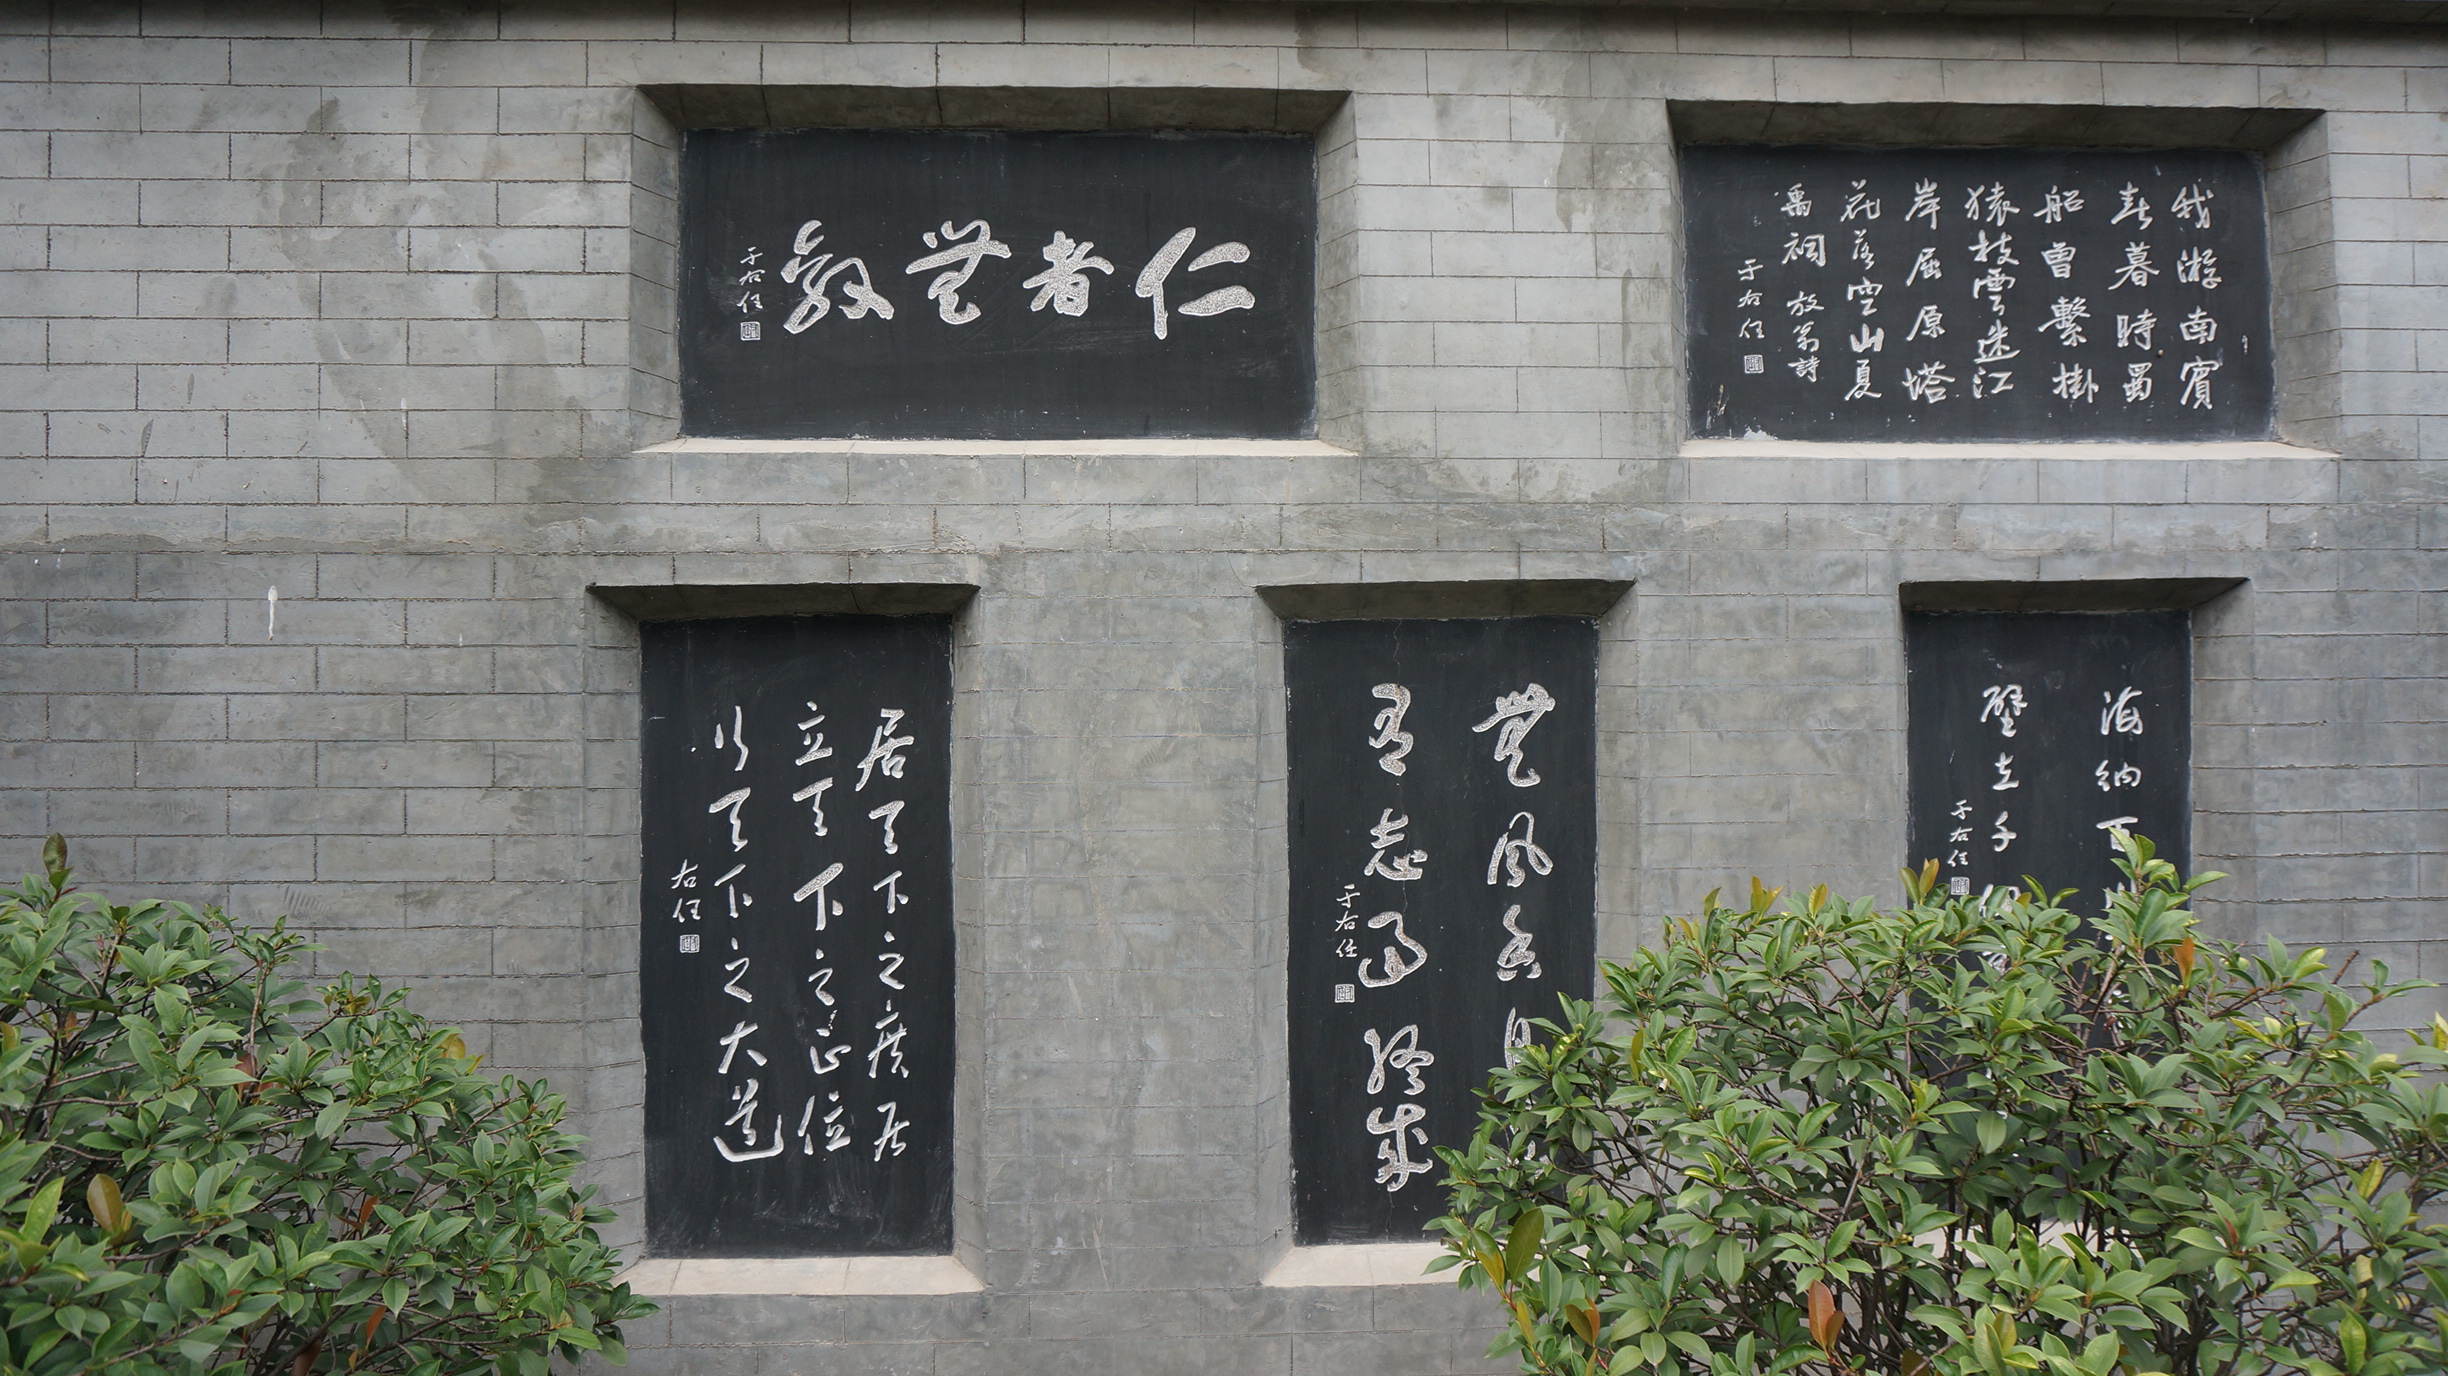 我游南賓
春暮時蜀
船曾繫掛
猿枝雲迷江
岸屈原塔
花落空山夏
禹祠 放翁詩
于右任
仁者無敵
于右任
海納百
壁立千
于右任
無風香
有志事終成
于右任
居天下之廣居
立天下之正位
行天下之大道
右任